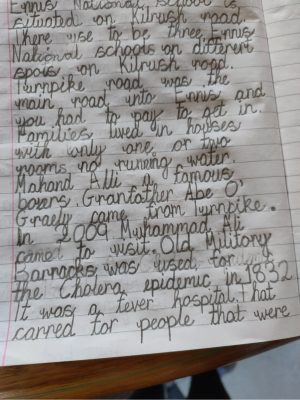 Ennis National school is
situated on Kilrush road.
There use to be three Ennis
National schools on different
spots on Kilrush road.
Turnpike road was the
main road into Ennis and
you had to pay to get in.
Families lived in houses
with only one or two
rooms, no runing water.
Mahand Alli a famous
boxers. Grantather Abe O'
Graely came from Turnpike.
In 2009 Muhammad Ali
came to visit. Old Military
Barracks was used for
the Cholera epidemic in 1832
It was a fever hospital. That
carred for people that were